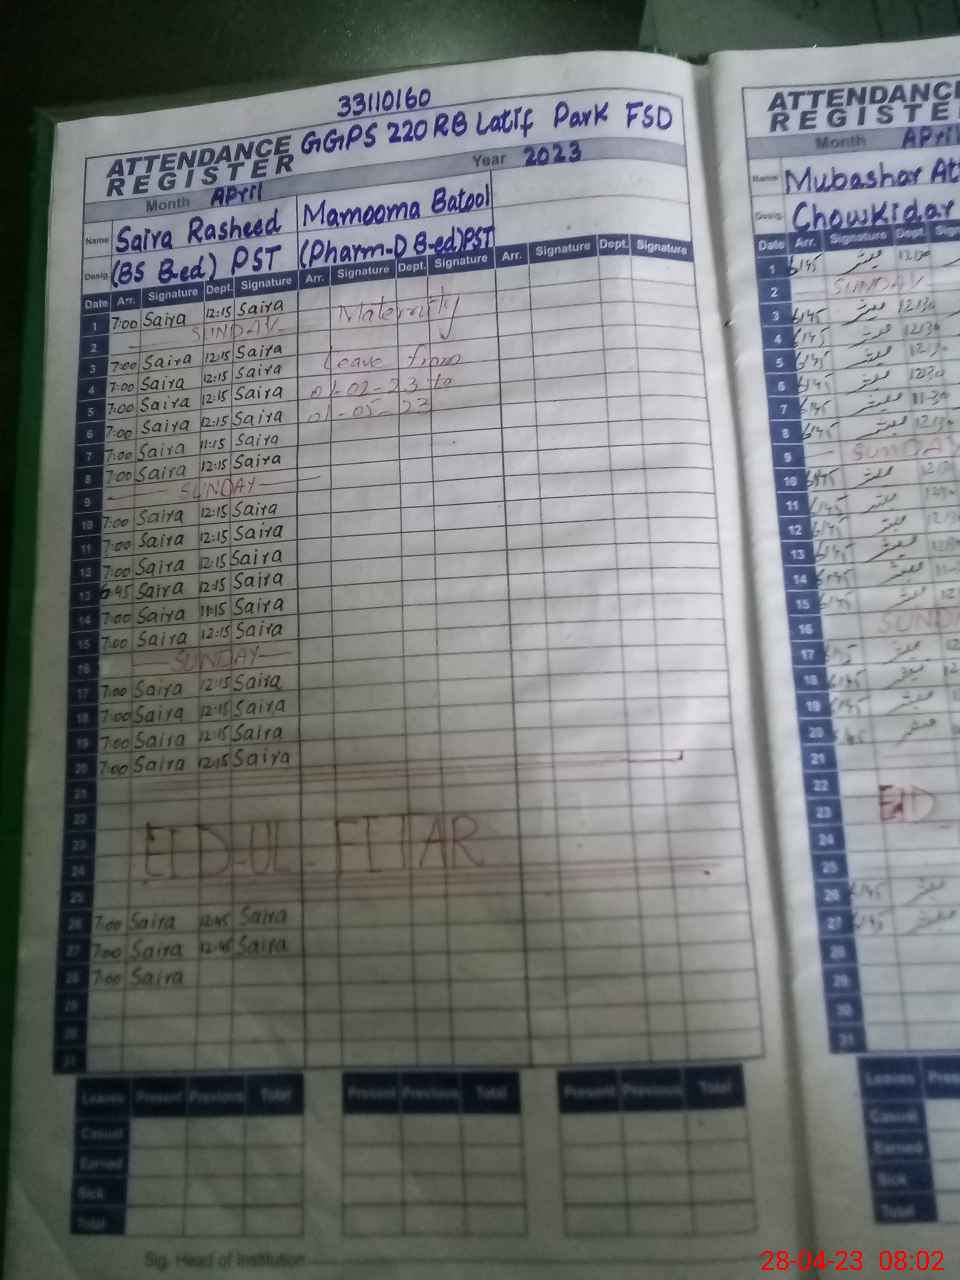 33110160
ATTENDANCE REGISTER GGPS 220 RB Latif Park FSD
Month April Year 2023
Name Saira Rasheed Mamooma Batool
Desig. (BS B.ed) PST (Pharm-D B-ed) PST
Date Arr. Signature Dept. Signature Arr. Signature Dept. Signature Arr. Signature Dept. Signature
1 7:00 Saira 12:15 Saira Maternity
2 SUNDAY
3 7:00 Saira 12:15 Saira Leave from
4 7:00 Saira 12:15 Saira 01-02-23 to
5 7:00 Saira 12:15 Saira 01-05-23
6 7:00 Saira 12:15 Saira
7 7:00 Saira 11:15 Saira
8 7:00 Saira 12:15 Saira
9 SUNDAY
10 7:00 Saira 12:15 Saira
11 7:00 Saira 12:15 Saira
12 7:00 Saira 12:15 Saira
13 6:45 Saira 12:15 Saira
14 7:00 Saira 11:15 Saira
15 7:00 Saira 12:15 Saira
16 SUNDAY
17 7:00 Saira 12:15 Saira
18 7:00 Saira 12:15 Saira
19 7:00 Saira 12:15 Saira
20 7:00 Saira 12:15 Saira
21
22
23 EID-UL-FITAR
24
25
26 7:00 Saira 12:45 Saira
27 7:00 Saira 12:45 Saira
28 7:00 Saira
29
30
31
Leaves Present Previous Total Present Previous Total Present Previous Total
Casual
Earned
Sick
Total
Sig. Head of Institution
ATTENDANCE
REGISTE
Month April
Name Mubashar
Desig. Chowkidar
Date Arr. Signature Dept. Sig
1 6:45 مبشر 12:30
2 SUNDAY
3 6:45 مبشر 12:30
4 6:45 مبشر 12:30
5 6:45 مبشر 12:30
6 6:45 مبشر 12:30
7 6:45 مبشر 11:30
8 6:45 مبشر 12:30
9 SUNDAY
10 6:45 مبشر
11 6:45 مبشر
12 6:45 مبشر
13 6:45 مبشر
14 6:45 مبشر
15 6:45 مبشر
16 SUND
17 6:45 مبشر
18 6:45 مبشر
19 6:45 مبشر
20 6:45 مبشر
21
22
23 EID
24
25
26 6:45 مبشر
27 6:45 مبشر
28
29
30
31
Leaves Pres
Casual
Earned
Sick
Total
28-04-23 08:02